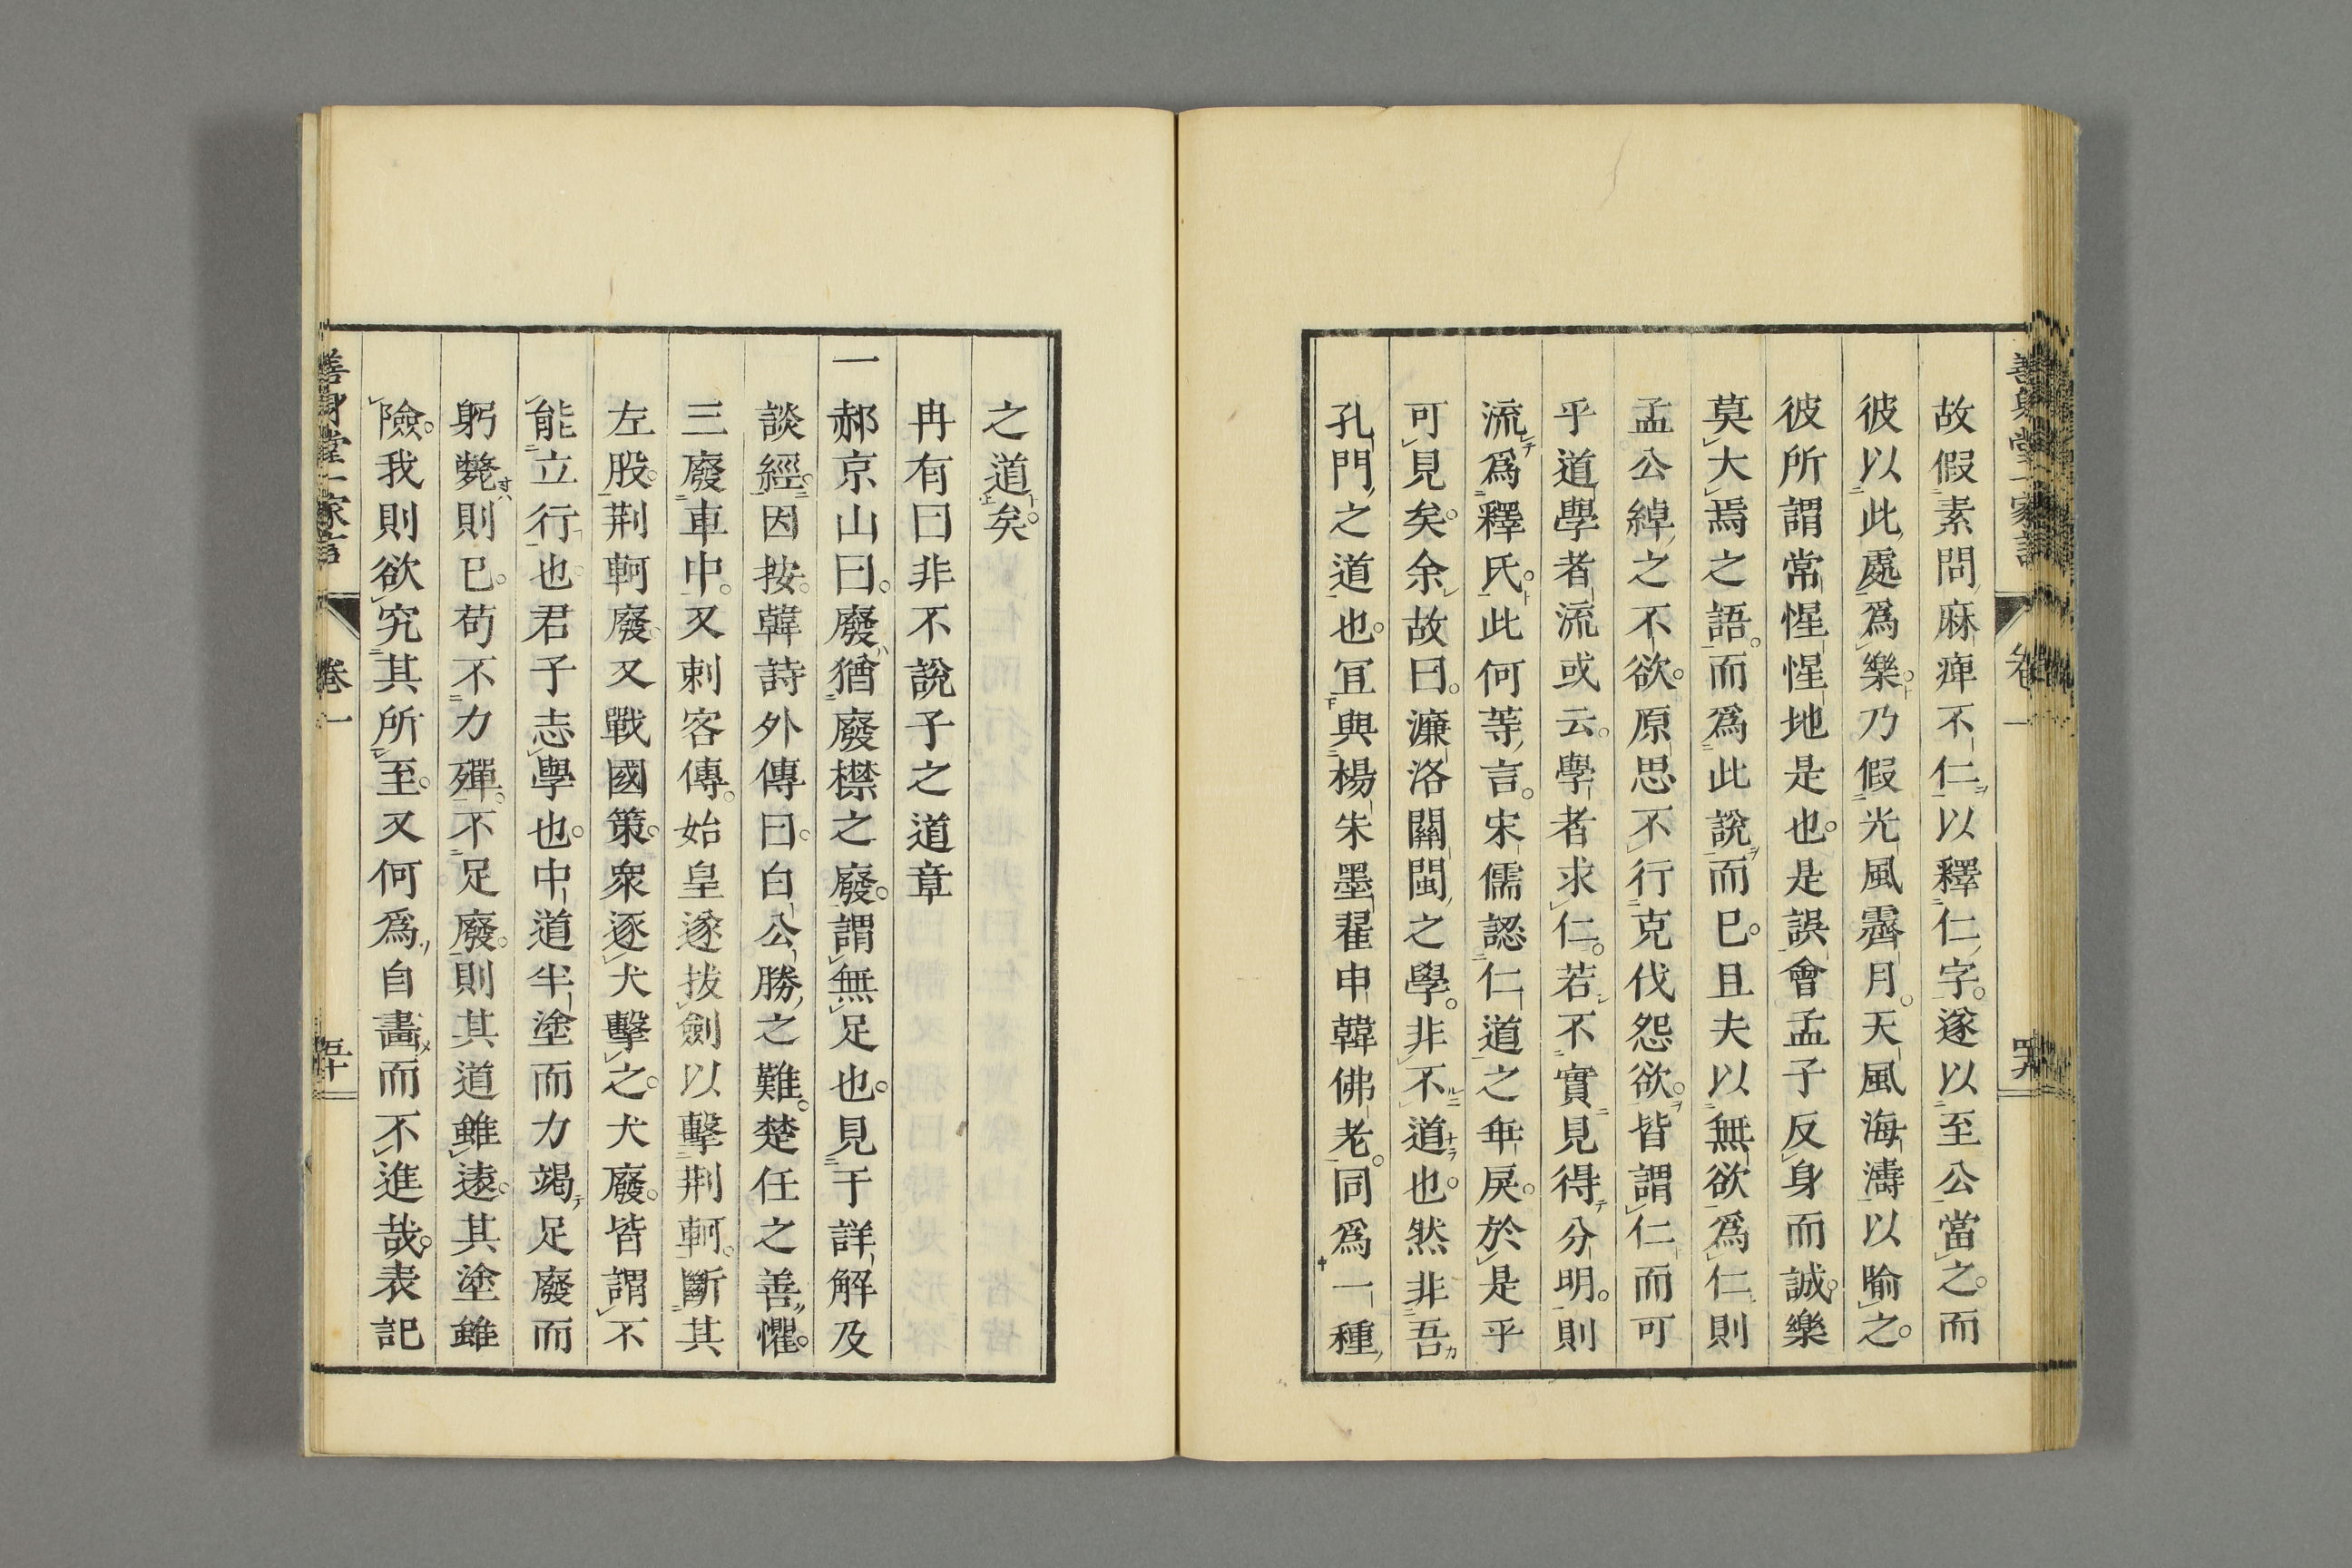 故假素問麻痺不仁以釋仁字。遂以至公當之。而
彼以此處爲樂。乃假光風霽月。天風海濤以喻之。
彼所謂常惺惺地是也。是誤會孟子反身而誠。樂
莫大焉之語。而爲此說而已。且夫以無欲爲仁則
孟公綽之不欲。原思不行克伐怨欲。皆謂仁而可
乎道學者流或云。學者求仁。若不實見得分明。則
流爲釋氏。此何等言。宋儒認仁道之乖戾。於是乎
可見矣。余故曰。濂洛關閩之學。非不道也。然非吾
孔門之道也。冝與楊朱墨翟申韓佛老。同爲一種
之道矣。
冉有曰非不說子之道章
一郝京山曰。廢猶廢襟之廢。謂無足也。見于詳解及
談經。因按。韓詩外傳曰。白公勝之難。楚任之善懼。
三廢車中。又刺客傳。始皇遂拔劍以擊荆軻。斷其
左股。荆軻廢又戰國策。衆逐犬擊之。犬廢。皆謂不
能立行也君子志學也。中道半塗而力竭足廢而
躬斃則已。苟不力殫。不足廢。則其道雖遠。其塗雖
險。我則欲究其所至。又何爲自畫而不進哉。表記
善身堂一家言 卷一 五十